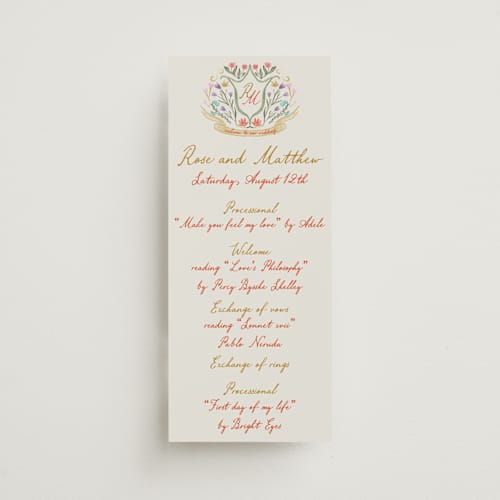 R
M
welcome to our wedding
Rose and Matthew
Saturday, August 12th
Processional
"Make you feel my love" by Adele
Welcome
reading "Love's Philosophy"
by Percy Bysshe Shelley
Exchange of vows
reading "Sonnet xvii"
Pablo Neruda
Exchange of rings
Processional
"First day of my life"
by Bright Eyes